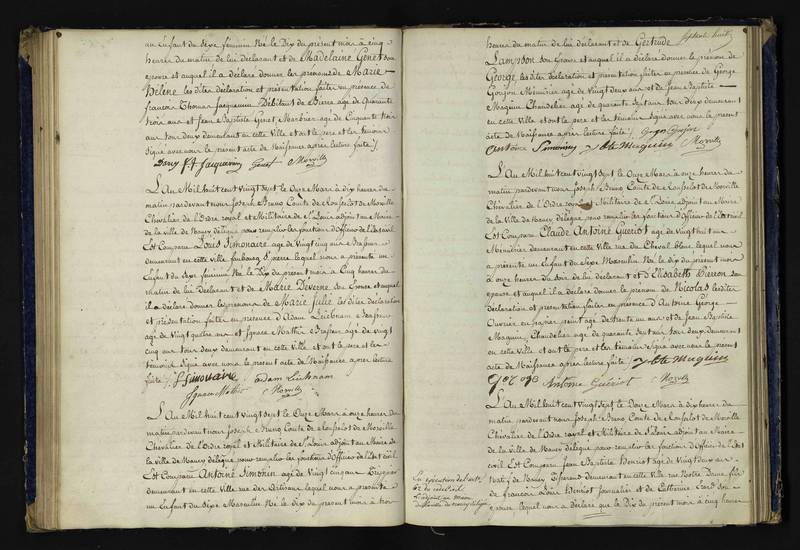 un Enfant du Sexe féminin Né le Dix du présent mois à cinq
heures du matin de lui déclarant et de Madelaine Genet son
épouse et auquel il a déclaré donner les prénoms de Marie
Hélène les dites déclaration et présentation faites en présence de
françois Thomas Jacquemin Débitant de Bierre agé de Quarante
trois ans et Jean Baptiste Genet Marbrier agé de Cinquante trois
ans tous deux demeurant en cette Ville et ont le pere et les temoins
signé avec nous le présent acte de Naissance après lecture faite /.
Jacquemin Genet Morville
L'An Mil huit cent vingt sept le Onze Mars à dix heures du
matin pardevant nous Joseph Bruno Comte de Lousselot de Morville
Chevalier de l'Ordre royal et Militaire de St Louis adjoint au Maire
de la Ville de Nancy délégué pour remplir les fonctions d'Officier de l'Etat civil
Est Comparu Louis Simonaire agé de Vingt cinq ans Brasseur
demeurant en cette ville faubourg St pierre lequel nous a présenté un
Enfant du Sexe féminin Né le Dix du présent mois à Cinq heures du
matin de lui Déclarant et de Marie Deverne son Epouse et auquel
il a déclaré donner les prénoms de Marie Julie les dites déclaration
et présentation faites en présence d'Adam Liebnam Brasseur
agé de Vingt quatre ans et Ignace Mathis Brasseur agé de Vingt
cinq ans tous deux demeurant en cette Ville et ont le pere et les
temoins signé avec nous le présent acte de Naissance après lecture
faite /. Simonaire adam Liebnam
Ignace Mathis Morville
L'An Mil huit cent vingt sept le Onze Mars à onze heures du
matin pardevant nous Joseph Bruno Comte de Lousselot de Morville
Chevalier de l'Ordre royal et Militaire de St Louis adjoint au Maire de
la ville de Nancy délégué pour remplir les fonctions d'Officier de l'Etat civil
Est Comparu Antoine Simonin agé de Vingt cinq ans
demeurant en cette Ville rue des Artisans lequel nous a présenté
un Enfant du Sexe Masculin Né le Dix du présent mois à trois
heures du matin de lui déclarant et de Gertrude
Lampson son épouse et auquel il a déclaré donner le prénom de
George les dites déclaration et présentation faites en présence de George
Gonjon Menuisier agé de Vingt deux ans et de Jean Baptiste
Maguin Chandelier agé de quarante sept ans tous deux demeurant
en cette Ville et ont le pere et les témoins signé avec nous le présent
acte de Naissance après lecture faite /.
Antoine Simonin Morville
L'An Mil huit cent Vingt sept le Onze Mars à Onze heures du
matin pardevant nous Joseph Bruno Comte de Lousselot de Morville
Chevalier de l'Ordre royal et Militaire de St Louis adjoint au Maire
de la Ville de Nancy délégué pour remplir les fonctions d'Officier de l'Etat civil
Est Comparu Claude Antoine Gueriot agé de Vingt huit ans
Menuisier demeurant en cette Ville rue du Cheval blanc lequel nous
a présenté un Enfant du Sexe Masculin Né le dix du présent mois
à onze heures du soir de lui déclarant et d'Elisabeth Pierron son
épouse et auquel il a déclaré donner le prénom de Nicolas les dites
déclaration et présentation faites en présence d'Antoine George
Ouvrier en papier peint agé de trente un ans et de Jean Baptiste
Maguin Chandelier agé de quarante sept ans tous deux demeurant
en cette Ville et ont le pere et les témoins signé avec nous le présent
acte de Naissance après lecture faite /.
Antoine Gueriot Morville
L'An Mil huit cent Vingt sept le Douze Mars à dix heures du
matin pardevant nous Joseph Bruno Comte de Lousselot de Morville
Chevalier de l'Ordre royal et Militaire de St Louis adjoint au Maire
de la Ville de Nancy délégué pour remplir les fonctions d'Officier de l'Etat
civil Est Comparu Jean Baptiste Henriot agé de Vingt deux ans
natif de Nancy Tisserand demeurant en cette Ville rue Notre Dame fils
de François Louis Henriot Journalier et de Catherine son
épouse lequel nous a déclaré que le Dix du présent mois à cinq heures